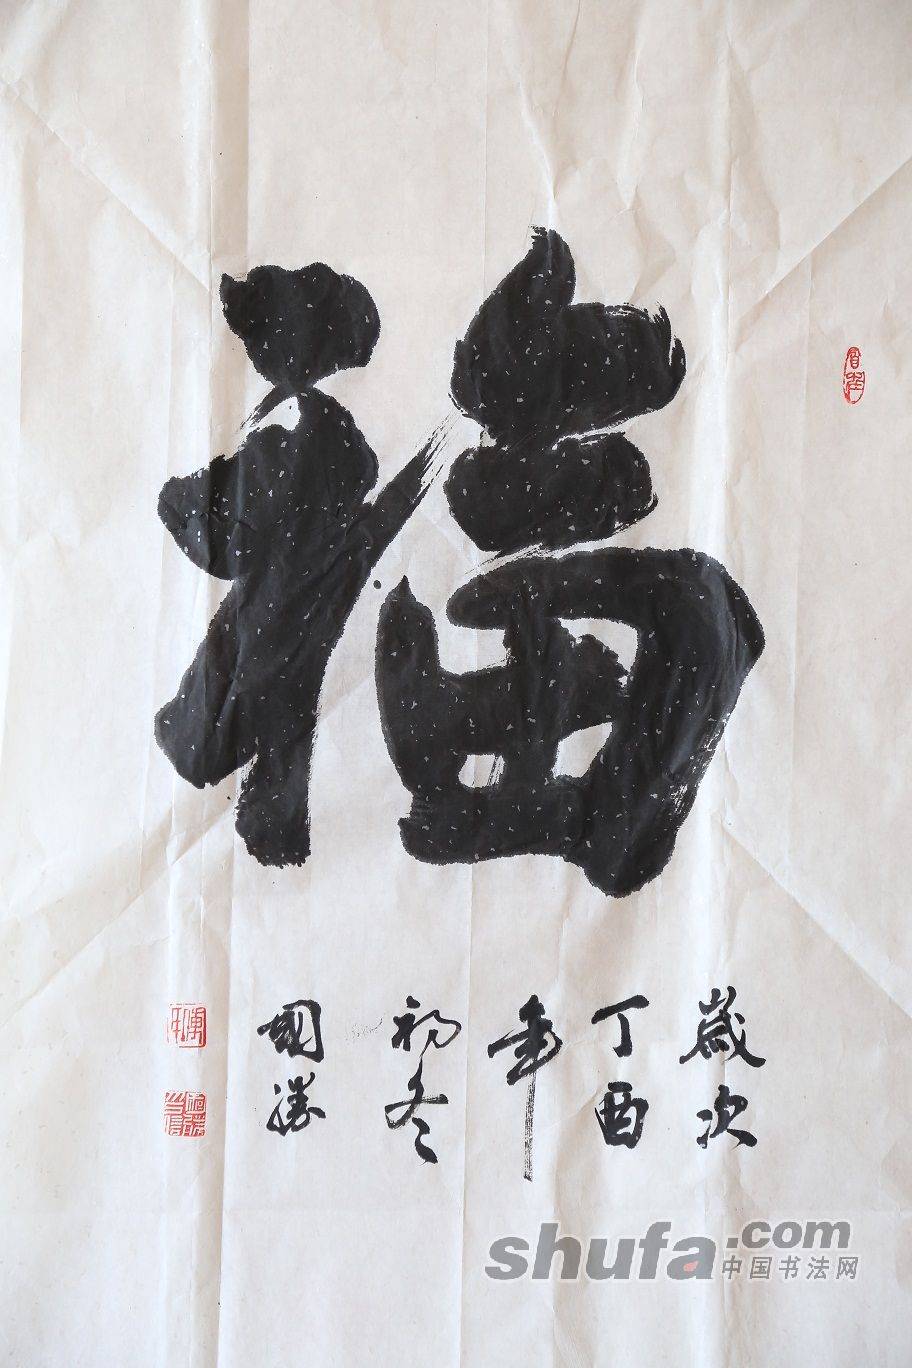 福
歲次
丁酉
年
初冬
國勝
shufa.com
中国书法网